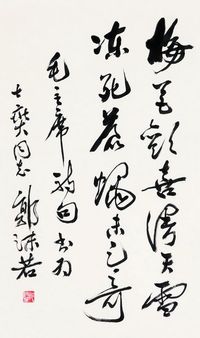 梅花歡喜漫天雪
凍死蒼蠅未足奇
毛主席詩句書为
同志 郭沫若